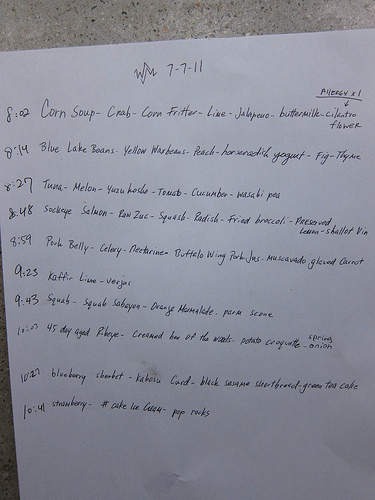 7-7-11
ALLERGY x 1
8:02 Corn Soup - Crab - Corn Fritter - Lime - Jalapeno - buttermilk - cilantro
flower
8:14 Blue Lake Beans - Yellow Waxbeans - Peach - horseradish yogurt - Fig - Thyme
8:27 Tuna - Melon - Yuzu kosho - Tomato - Cucumber - wasabi pea
8:48 Sockeye Salmon - Raw Zuc - Squash - Radish - Fried broccoli - Preserved
Lemon - shallot Vin
8:59 Pork Belly - Celery - Nectarine - Buffalo Wing Pork Jus - Muscavado glazed Carrot
9:23 Kaffir Lime - verjus
9:43 Squab - Squab Sabayon - Orange Marmalade - parm scone
10:03 45 day aged Ribeye - Creamed hen of the woods - potato croquette - spring
onion
10:27 blueberry sherbet - Kabosu Curd - black sesame shortbread - green tea cake
10:41 strawberry - # cake Ice Cream - pop rocks